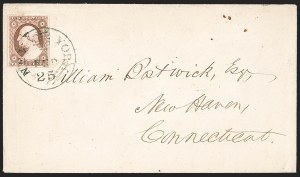 NEW YORK
25
William Bostwick, Esq,
New Haven,
Connecticut.